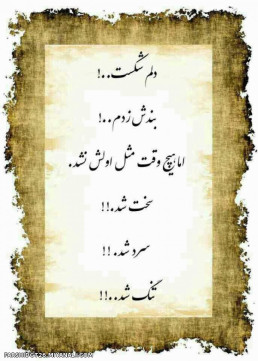 دلم شکست..!
بندش زدم..!
اما هیچ وقت مثل اولش نشد.
سخت شد.!!
سرد شد.!!
تنگ شد..!!